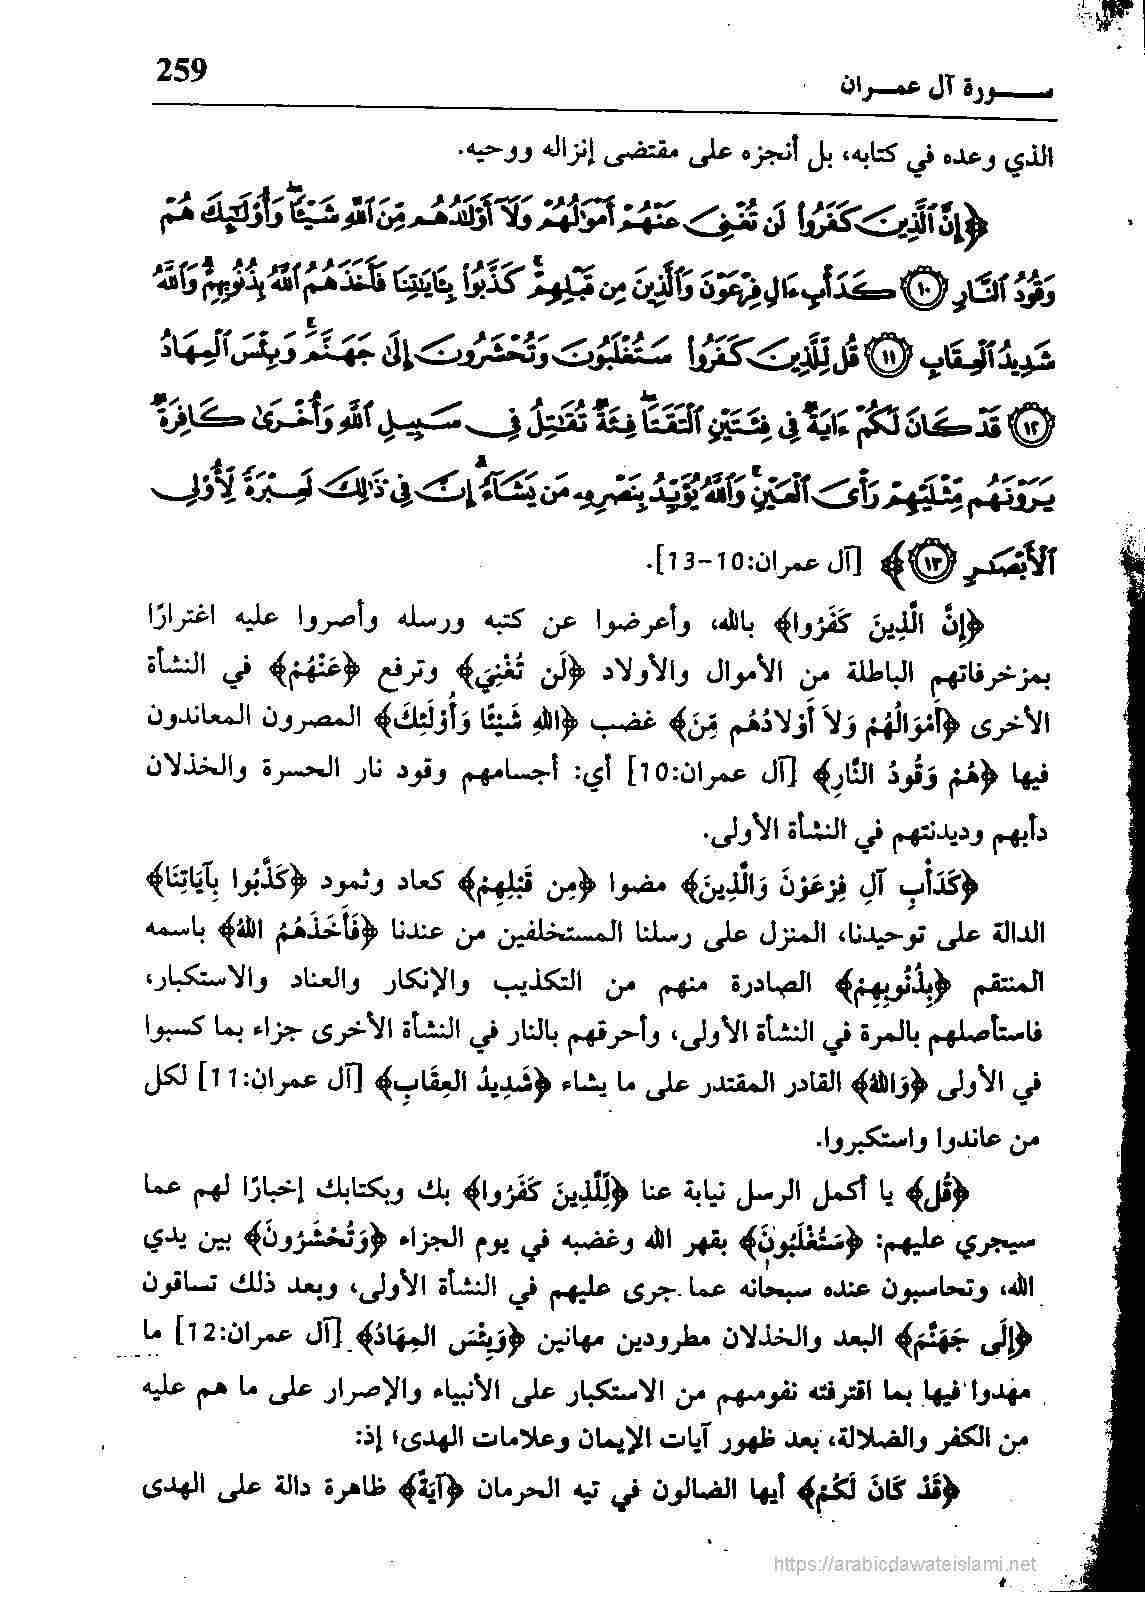 سـورة آل عمـران
259
الذي وعده في كتابه، بل أنجزه على مقتضى إنزاله ووحيه.
﴿إِنَّ ٱلَّذِينَ كَفَرُوا۟ لَن تُغْنِىَ عَنْهُمْ أَمْوَٰلُهُمْ وَلَآ أَوْلَٰدُهُم مِّنَ ٱللَّهِ شَيْـًٔا ۖ وَأُو۟لَٰٓئِكَ هُمْ
وَقُودُ ٱلنَّارِ ١٠ كَدَأْبِ ءَالِ فِرْعَوْنَ وَٱلَّذِينَ مِن قَبْلِهِمْ ۚ كَذَّبُوا۟ بِـَٔايَٰتِنَا فَأَخَذَهُمُ ٱللَّهُ بِذُنُوبِهِمْ ۗ وَٱللَّهُ
شَدِيدُ ٱلْعِقَابِ ١١ قُل لِّلَّذِينَ كَفَرُوا۟ سَتُغْلَبُونَ وَتُحْشَرُونَ إِلَىٰ جَهَنَّمَ ۚ وَبِئْسَ ٱلْمِهَادُ
١٢ قَدْ كَانَ لَكُمْ ءَايَةٌ فِى فِئَتَيْنِ ٱلْتَقَتَا ۖ فِئَةٌ تُقَٰتِلُ فِى سَبِيلِ ٱللَّهِ وَأُخْرَىٰ كَافِرَةٌ
يَرَوْنَهُم مِّثْلَيْهِمْ رَأْىَ ٱلْعَيْنِ ۚ وَٱللَّهُ يُؤَيِّدُ بِنَصْرِهِۦ مَن يَشَآءُ ۗ إِنَّ فِى ذَٰلِكَ لَعِبْرَةً لِّأُو۟لِى
ٱلْأَبْصَٰرِ ١٣﴾ [آل عمران:10-13].
﴿إِنَّ الَّذِينَ كَفَرُوا﴾ بالله، وأعرضوا عن كتبه ورسله وأصروا عليه اغترارًا
بمزخرفاتهم الباطلة من الأموال والأولاد ﴿لَن تُغْنِيَ﴾ وترفع ﴿عَنْهُمْ﴾ في النشأة
الأخرى ﴿أَمْوَالُهُمْ وَلاَ أَوْلادُهُم مِّنَ﴾ غضب ﴿اللهِ شَيْئًا وَأُوْلَئِكَ﴾ المصرون المعاندون
فيها ﴿هُمْ وَقُودُ النَّارِ﴾ [آل عمران:10] أي: أجسامهم وقود نار الحسرة والخذلان
دأبهم وديدنتهم في النشأة الأولى.
﴿كَدَأْبِ آلِ فِرْعَوْنَ وَالَّذِينَ﴾ مضوا ﴿مِن قَبْلِهِمْ﴾ كعاد وثمود ﴿كَذَّبُوا بِآيَاتِنَا﴾
الدالة على توحيدنا، المنزل على رسلنا المستخلفين من عندنا ﴿فَأَخَذَهُمُ اللهُ﴾ باسمه
المنتقم ﴿بِذُنُوبِهِمْ﴾ الصادرة منهم من التكذيب والإنكار والعناد والاستكبار،
فاستأصلهم بالمرة في النشأة الأولى، وأحرقهم بالنار في النشأة الأخرى جزاء بما كسبوا
في الأولى ﴿وَاللهُ﴾ القادر المقتدر على ما يشاء ﴿شَدِيدُ العِقَابِ﴾ [آل عمران:11] لكل
من عاندوا واستكبروا.
﴿قُل﴾ يا أكمل الرسل نيابة عنا ﴿لِّلَّذِينَ كَفَرُوا﴾ بك وبكتابك إخبارًا لهم عما
سيجري عليهم: ﴿سَتُغْلَبُونَ﴾ بقهر الله وغضبه في يوم الجزاء ﴿وَتُحْشَرُونَ﴾ بين يدي
الله، وتحاسبون عنده سبحانه عما جرى عليهم في النشأة الأولى، وبعد ذلك تساقون
﴿إِلَى جَهَنَّمَ﴾ البعد والخذلان مطرودين مهانين ﴿وَبِئْسَ المِهَادُ﴾ [آل عمران:12] ما
مهدوا فيها بما اقترفته نفوسهم من الاستكبار على الأنبياء والإصرار على ما هم عليه
من الكفر والضلالة، بعد ظهور آيات الإيمان وعلامات الهدى؛ إذ:
﴿قَدْ كَانَ لَكُمْ﴾ أيها الضالون في تيه الحرمان ﴿آيَةٌ﴾ ظاهرة دالة على الهدى
https://arabicdawateislami.net